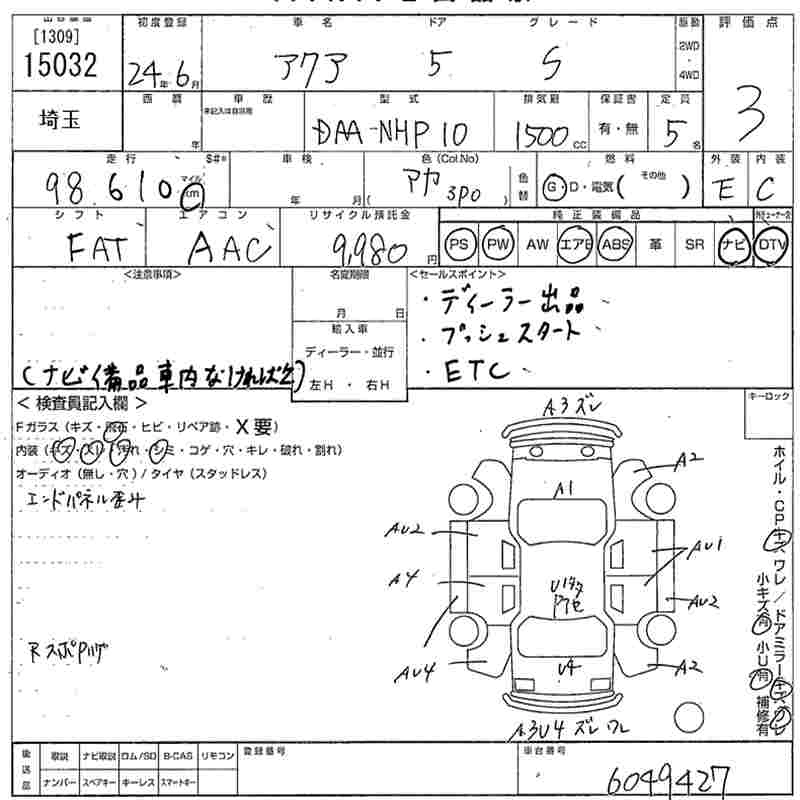 [1309]
15032
初度登録
24年6月
車名
アクア
ドア
5
グレード
S
駆動
2WD
・
4WD
評価点
3
埼玉
西暦
年
車歴
未記入は自家用
型式
DAA-NHP10
排気量
1500cc
保証書
有・無
定員
5名
走行
98,610
マイル
km
S#*
車検
年 月
色(Col.No)
アカ
( 3P0 )
色替
燃料
G・D・電気( その他 )
外装
E
内装
C
シフト
FAT
エアコン
AAC
リサイクル預託金
9,980円
純正装備品
PS PW AW エアB ABS 革 SR ナビ
DTV
<注意事項>
(ナビ備品車内なければ欠)
名変期限
月 日
輸入車
ディーラー・並行
左H・右H
<セールスポイント>
・ディーラー出品
・プッシュスタート
・ETC
<検査員記入欄>
Fガラス(キズ・飛石・ヒビ・リペア跡・X要)
内装(キズ・スレ・汚れ・シミ・コゲ・穴・キレ・破れ・割れ)
オーディオ(無し・穴)/タイヤ(スタッドレス)
エンドパネル歪み
A3ズレ
A1
A2
AU2
A4
AU4
AU1
AU2
A2
U4
A3U4 ズレ ワレ
キーロック
ホイル・CPキズ、ワレ/ドアミラーキズ、
小キズ有 小U有 補修有
後送品
取説 ナビ取説 ロム/SD B-CAS リモコン
ナンバー スペアキー キーレス スマートキー
登録番号
車台番号
6049427